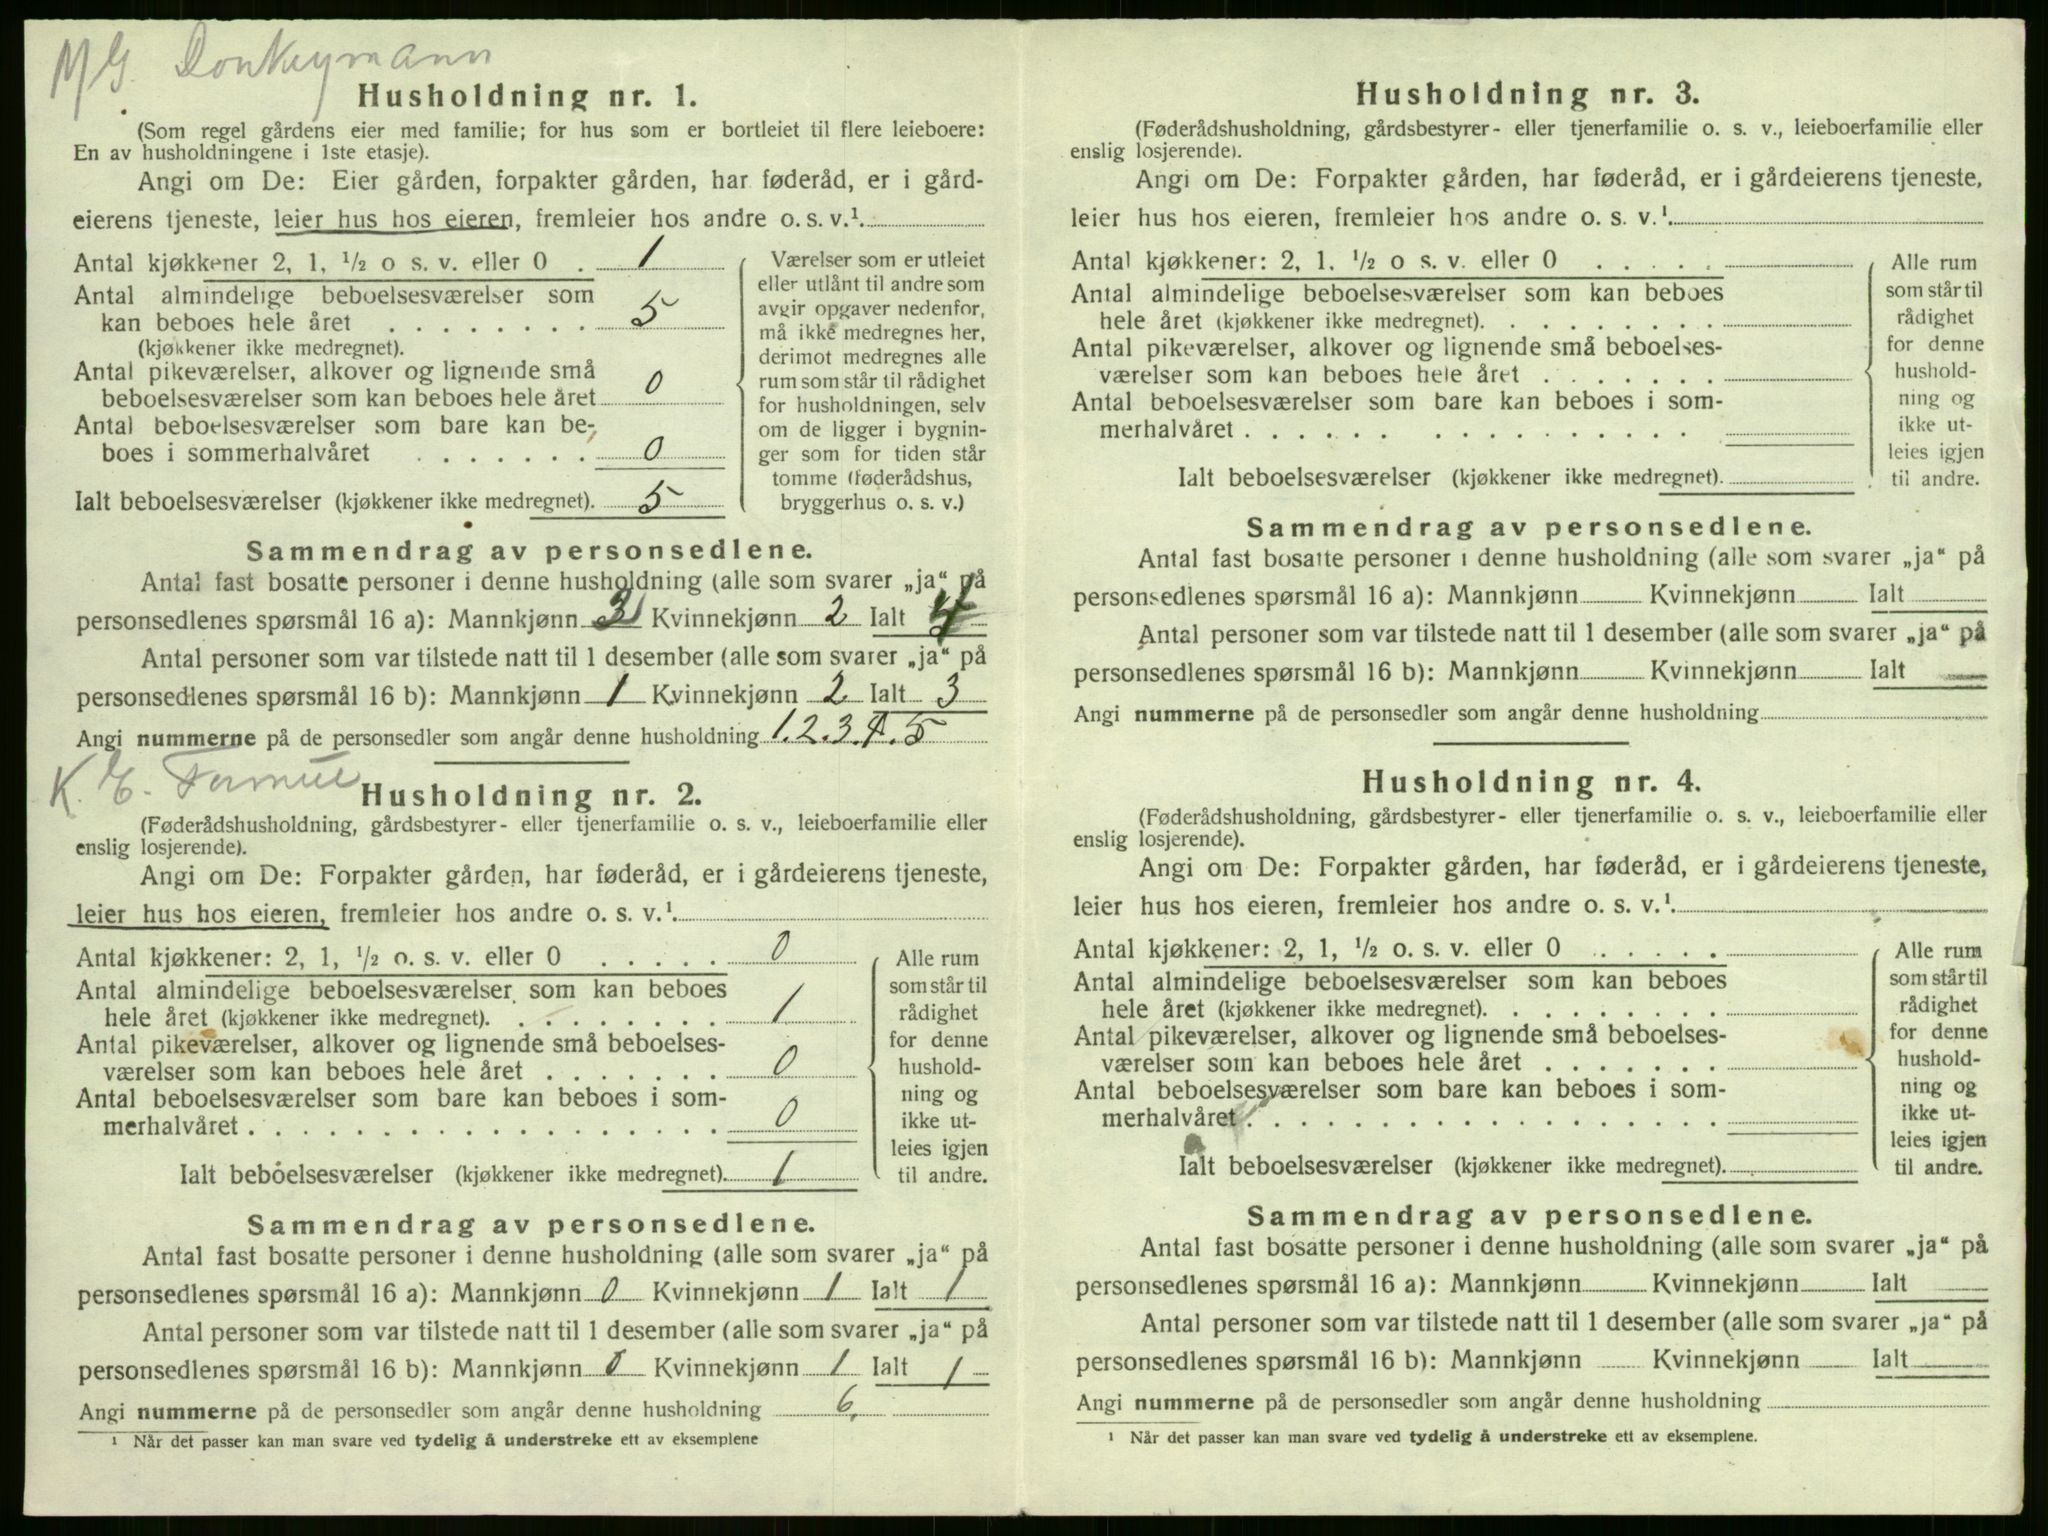 M G. Donkeymann
Husholdning nr. 1.
(Som regel gårdens eier med familie; for hus som er bortleiet til flere leieboere:
En av husholdningene i 1ste etasje).
Angi om De: Eier gården, forpakter gården, har føderåd, er i gård-
eierens tjeneste, leier hus hos eieren, fremleier hos andre o. s. v.¹.
Antal kjøkkener 2, 1, ½ o s. v. eller 0 . 1
Antal almindelige beboelsesværelser som
kan beboes hele året . . . . . . . . 5
(kjøkkener ikke medregnet).
Antal pikeværelser, alkover og lignende små
beboelsesværelser som kan beboes hele året 0
Antal beboelsesværelser som bare kan be-
boes i sommerhalvåret . . . . . . . 0
Ialt beboelsesværelser (kjøkkener ikke medregnet). 5
Værelser som er utleiet
eller utlånt til andre som
avgir opgaver nedenfor,
må ikke medregnes her,
derimot medregnes alle
rum som står til rådighet
for husholdningen, selv
om de ligger i bygnin-
ger som for tiden står
tomme (føderådshus,
bryggerhus o. s. v.)
Sammendrag av personsedlene.
Antal fast bosatte personer i denne husholdning (alle som svarer „ja“ på
personsedlenes spørsmål 16 a): Mannkjønn Kvinnekjønn 2 Ialt 4
Antal personer som var tilstede natt til 1 desember (alle som svarer „ja“ på
personsedlenes spørsmål 16 b): Mannkjønn 1 Kvinnekjønn 2 Ialt 3
Angi nummerne på de personsedler som angår denne husholdning 1.2.3.4.5
K. E.
Husholdning nr. 2.
(Føderådshusholdning, gårdsbestyrer- eller tjenerfamilie o. s. v., leieboerfamilie eller
enslig losjerende).
Angi om De: Forpakter gården, har føderåd, er i gårdeierens tjeneste,
leier hus hos eieren, fremleier hos andre o. s. v.¹.
Antal kjøkkener: 2, 1, ½ o. s. v. eller 0 . . . . . 0
Antal almindelige beboelsesværelser som kan beboes
hele året (kjøkkener ikke medregnet). . . . . . . . . 1
Antal pikeværelser, alkover og lignende små beboelses-
værelser som kan beboes hele året . . . . . . . 0
Antal beboelsesværelser som bare kan beboes i som-
merhalvåret . . . . . . . . . . . . . . . . . . 0
Ialt beboelsesværelser (kjøkkener ikke medregnet). 1
Alle rum
som står til
rådighet
for denne
hushold-
ning og
ikke ut-
leies igjen
til andre.
Sammendrag av personsedlene.
Antal fast bosatte personer i denne husholdning (alle som svarer „ja“ på
personsedlenes spørsmål 16 a): Mannkjønn 0 Kvinnekjønn 1 Ialt 1
Antal personer som var tilstede natt til 1 desember (alle som svarer „ja“ på
personsedlenes spørsmål 16 b): Mannkjønn 0 Kvinnekjønn 1 Ialt 1
Angi nummerne på de personsedler som angår denne husholdning 6.
¹ Når det passer kan man svare ved tydelig å understreke ett av eksemplene
Husholdning nr. 3.
(Føderådshusholdning, gårdsbestyrer- eller tjenerfamilie o. s. v., leieboerfamilie eller
enslig losjerende).
Angi om De: Forpakter gården, har føderåd, er i gårdeierens tjeneste,
leier hus hos eieren, fremleier hos andre o. s. v.¹.
Antal kjøkkener: 2, 1, ½ o s. v. eller 0 . . . . .
Antal almindelige beboelsesværelser som kan beboes
hele året (kjøkkener ikke medregnet). . . . . . . . .
Antal pikeværelser, alkover og lignende små beboelses-
værelser som kan beboes hele året . . . . . . .
Antal beboelsesværelser som bare kan beboes i som-
merhalvåret . . . . . . . . . . . . . . . . .
Ialt beboelsesværelser (kjøkkener ikke medregnet).
Alle rum
som står til
rådighet
for denne
hushold-
ning og
ikke ut-
leies igjen
til andre.
Sammendrag av personsedlene.
Antal fast bosatte personer i denne husholdning (alle som svarer „ja“ på
personsedlenes spørsmål 16 a): Mannkjønn Kvinnekjønn Ialt
Antal personer som var tilstede natt til 1 desember (alle som svarer „ja“ på
personsedlenes spørsmål 16 b): Mannkjønn Kvinnekjønn Ialt
Angi nummerne på de personsedler som angår denne husholdning
Husholdning nr. 4.
(Føderådshusholdning, gårdsbestyrer- eller tjenerfamilie o. s. v., leieboerfamilie eller
enslig losjerende).
Angi om De: Forpakter gården, har føderåd, er i gårdeierens tjeneste,
leier hus hos eieren, fremleier hos andre o. s. v.¹.
Antal kjøkkener: 2, 1, ½ o. s. v. eller 0 . . . . .
Antal almindelige beboelsesværelser som kan beboes
hele året (kjøkkener ikke medregnet). . . . . . . . .
Antal pikeværelser, alkover og lignende små beboelses-
værelser som kan beboes hele året . . . . . . .
Antal beboelsesværelser som bare kan beboes i som-
merhalvåret . . . . . . . . . . . . . . . . . .
Ialt beboelsesværelser (kjøkkener ikke medregnet).
Alle rum
som står til
rådighet
for denne
hushold-
ning og
ikke ut-
leies igjen
til andre.
Sammendrag av personsedlene.
Antal fast bosatte personer i denne husholdning (alle som svarer „ja“ på
personsedlenes spørsmål 16 a): Mannkjønn Kvinnekjønn Ialt
Antal personer som var tilstede natt til 1 desember (alle som svarer „ja“ på
personsedlenes spørsmål 16 b): Mannkjønn Kvinnekjønn Ialt
Angi nummerne på de personsedler som angår denne husholdning
¹ Når det passer kan man svare ved tydelig å understreke ett av eksemplene.